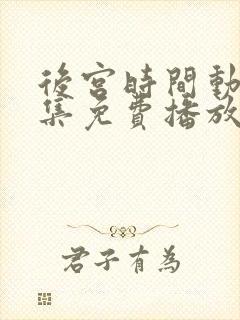 後宮時間動
集免費播放
君子有為